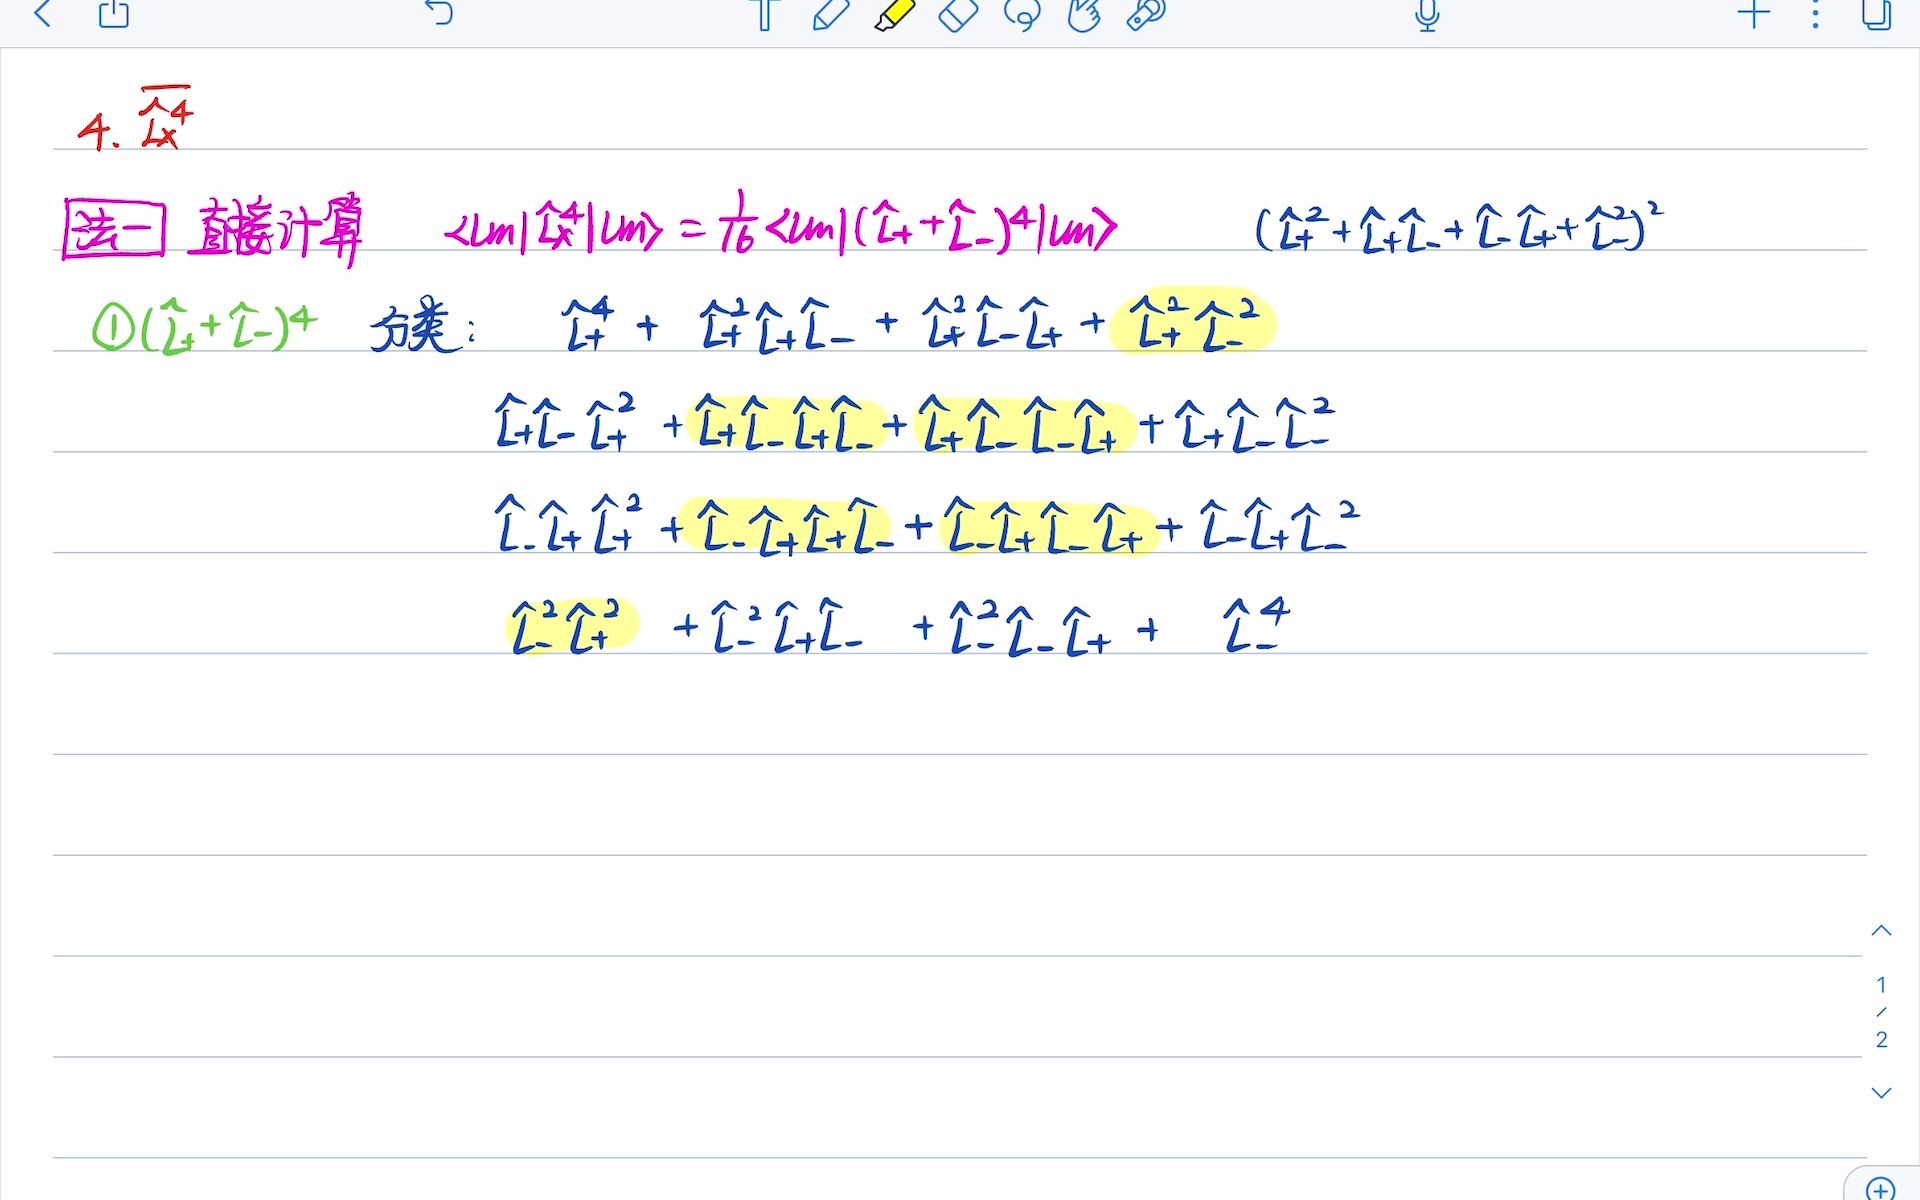 4. \overline{L̂x⁴}
法一 直接计算 <lm|L̂x⁴|lm> = 1/16 <lm|(L̂₊+L̂₋)⁴|lm> (L̂₊²+L̂₊L̂₋+L̂₋L̂₊+L̂₋²)²
①(L̂₊+L̂₋)⁴ 分类: L̂₊⁴ + L̂₊²L̂₊L̂₋ + L̂₊²L̂₋L̂₊ + L̂₊²L̂₋²
L̂₊L̂₋L̂₊² + L̂₊L̂₋L̂₊L̂₋ + L̂₊L̂₋L̂₋L̂₊ + L̂₊L̂₋L̂₋²
L̂₋L̂₊L̂₊² + L̂₋L̂₊L̂₊L̂₋ + L̂₋L̂₊L̂₋L̂₊ + L̂₋L̂₊L̂₋²
L̂₋²L̂₊² + L̂₋²L̂₊L̂₋ + L̂₋²L̂₋L̂₊ + L̂₋⁴
1
/
2